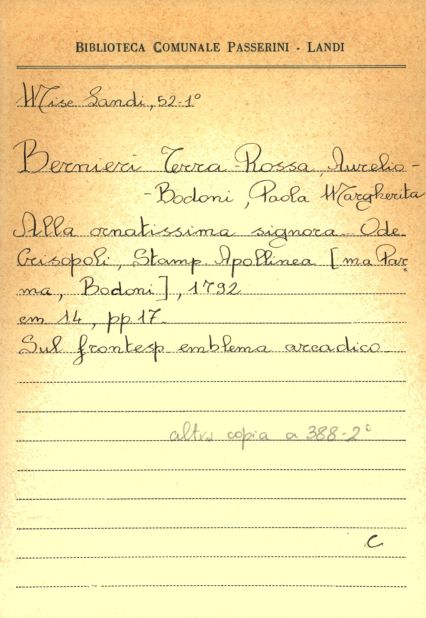 BIBLIOTECA COMUNALE PASSERINI - LANDI
Misc Landi, 52-1º
Bernieri Terra-Rossa, Aurelio-
-Bodoni, Paola Margherita
Alla ornatissima signora... Ode.
Crisopoli, Stamp. Apollinea [ma Par=
ma, Bodoni], 1792
cm 14, pp. 17.
Sul frontesp. emblema arcadico.
altra copia a 388-2º
C